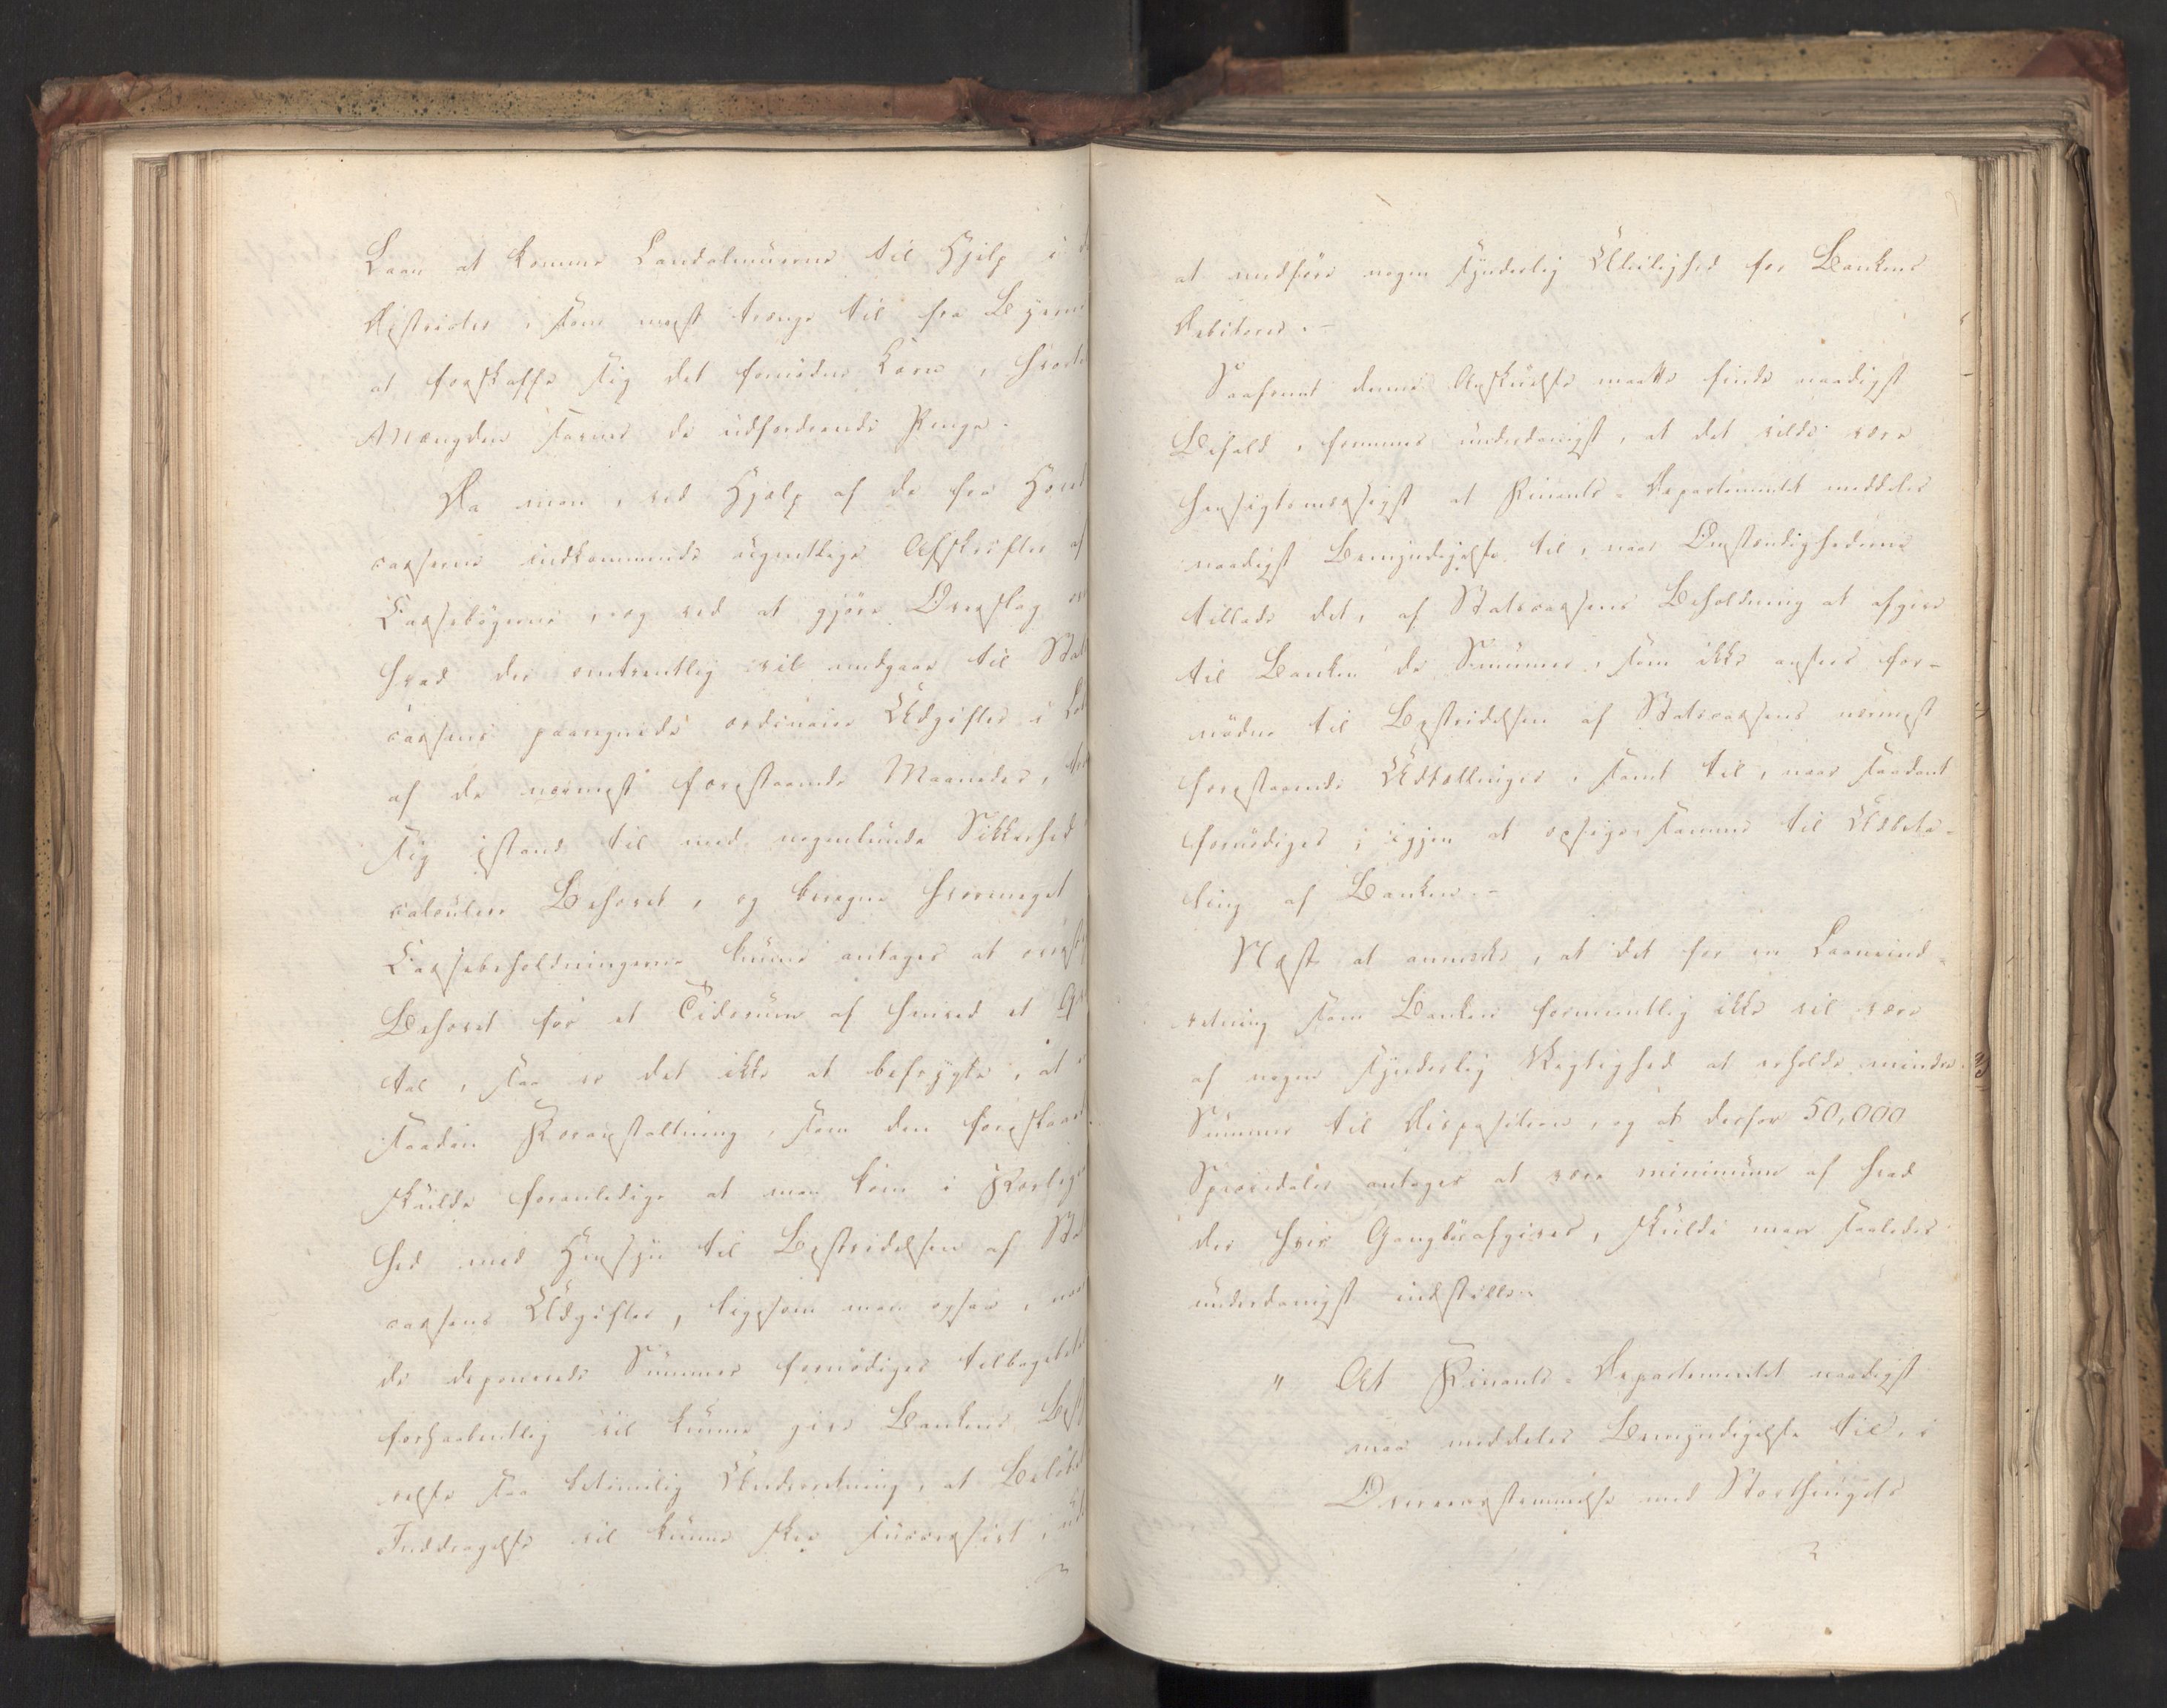 Laan at komme Landalmuerne til Hjelp i d
Districter, som mest trænge til fra Byern
at forskaffe sig det fornødne Korn, hvortil
Mængden savner de udfordrende Penge.
Da man, ved Hjælp af de fra Hoved
cassene indkommende ugentlige Afskrifter af
Cassebøgerne, og ved at gjøre Overslag over
hvad der omtrentlig vil medgaae til Stats
cassens paaregnede ordinaire Udgifter i Løb
af de nærmest forestaaende Maaneder,
sig istand til med nogenlunde Sikkerhed
calculere Behovet, og beregne hvormeget
Cassebeholdningerne kunne antages at overst
Behovet for et Tidsrum af henved et Qv
tal, saa er det ikke at befrygte, at
saadan Foranstaltning, som den foreslaaede
skulde foranledige at man kom i Forlegen
hed med Hensyn til Bestridelsen af Stats
cassens Udgifter, ligesom man ogsaa, naar
de deponerede Summer fornødiges tilbagebetalt
forhaabentlig vil kunne give Bankens Besty
relse saa betimelig Underretning, at Beløbets
Inddragelse vil kunne skee successivt, uden
at medføre nogen synderlig Uleilighed for Bankens
Debitorer.-
Saafremt denne Anskuelse maatte finde naadigst
Bifald, formenes underdanigst, at det vilde være
hensigtsmæssigst at Finants-Departementet meddeles
naadigst Bemyndigelse til, naar Omstændighederne
tillade det, af Statscassens Beholdning at afgive
til Banken de Summer, som ikke ansees for-
nødne til Bestridelsen af Statscassens nærmest
forestaaende Udtællinger, samt til, naar saadant
fornødiges, igjen at opsige samme til Udbeta-
ling af Banken.-
Næst at anmærke, at det for en Laaneind-
retning som Banken formentlig ikke vil være
af nogen synderlig Vigtighed at erholde mindre
Summer til Disposition, og at derfor 50,000
Speciedaler antages at være minimum af hvad
der hver Gang bør afgives, skulde man saaledes
underdanigst indstille:
" At Finants-Departementet naadigst
maa meddeles Bemyndigelse til, i
Overeensstemmelse med Storthingets